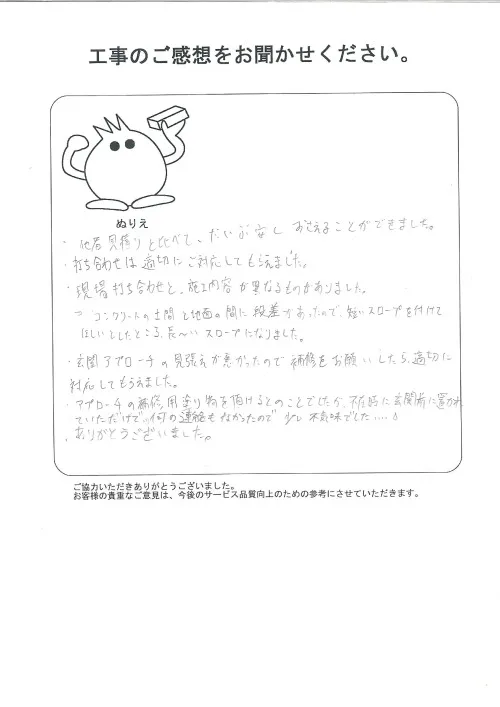 工事のご感想をお聞かせください。
ぬりえ
・他者見積りと比べて、だいぶ安くおさえることができました。
・打ち合わせは適切にご対応してもらえました。
・現場打ち合わせと、施工内容が異なるものがありました。
⇒コンクリートの土間と地面の間に段差があったので、短いスロープを付けて
ほしいとしたところ、長〜いスロープになりました。
・玄関アプローチの見張えが悪かったので補修をお願いしたら、適切に
対応してもらえました。
・アプローチの補修用塗り物を頂けるとのことでしたが、不在時に玄関前に置かれ
ていただけで、何の連絡もなかったので少し不気味でした....
・ありがとうございました。
ご協力いただきありがとうございました。
お客様の貴重なご意見は、今後のサービス品質向上のための参考にさせていただきます。